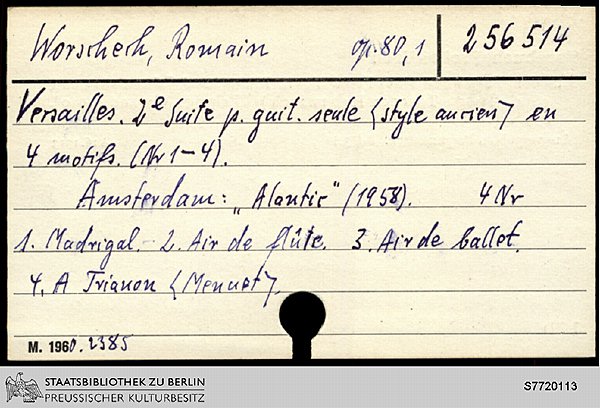 Worschech, Romain op. 80,1 256514
Versailles. 2e Suite p. guit. seule (style ancien) en
4 motifs. (Nr 1–4).
Amsterdam: „Alantic" (1958). 4 Nr
1. Madrigal. 2. Air de flûte. 3. Air de ballet.
4. A Trianon (Menuet).
M. 1960. 2385
STAATSBIBLIOTHEK ZU BERLIN
PREUSSISCHER KULTURBESITZ
S7720113